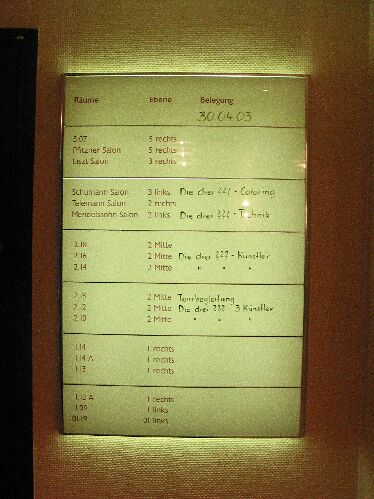 Räume Ebene Belegung
30.04.03
5.07 5 rechts
Pfitzner Salon 5 rechts
Liszt Salon 3 rechts
Schumann Salon 3 links Die drei ??? - Catering
Telemann Salon 2 rechts
Mendelssohn Salon 2 links Die drei ??? - Technik
2.18 2 Mitte
2.16 2 Mitte Die drei ??? - Künstler
2.14 2 Mitte " " "
2.13 2 Mitte Tourbegleitung
2.12 2 Mitte Die drei ??? 3 Künstler
2.10 2 Mitte " " "
1.14 1 rechts
1.14 A 1 rechts
1.13 1 rechts
1.13 A 1 rechts
1.09 1 links
01.19 01 links